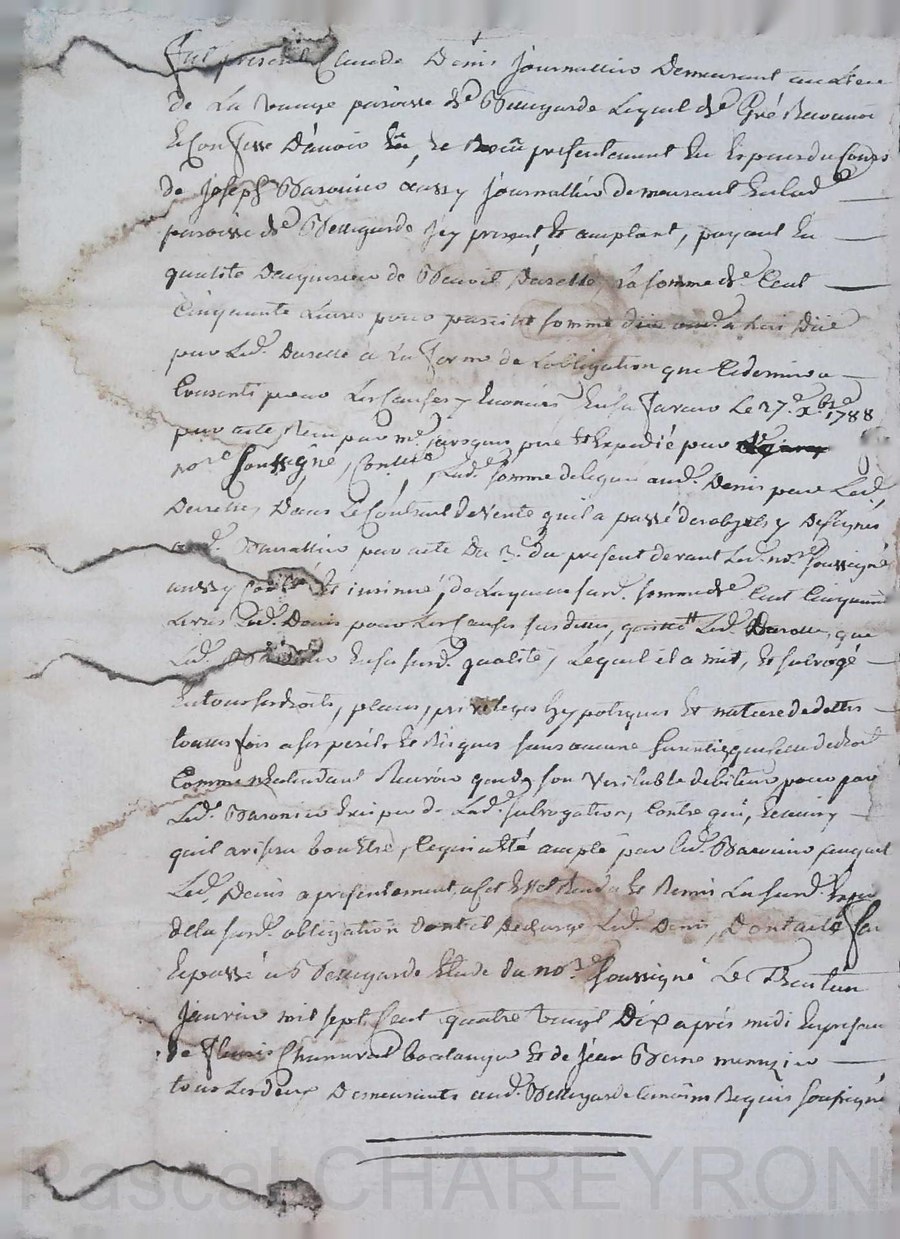 Fut present Claude Denis Journallier Demeurant au Lieu
de La paroisse de Bellegarde Lequel de Gré Reconnoit
Et Confesse D'avoir Eu et Receu presentement En Especes du Cours
de Joseph Baronnier aussy Journallier demeurant En lad
paroisse de Bellegarde jcy present, et acceptant, payant En
qualité Dacquereur de Benoit Darelle, La somme de Cent
Cinquante Livres pour pareille somme düe a Lui Düe
par Led. Darelle a La forme de Lobligation que Ce dernier a
Consenti pour Les Causes y Enoncées En sa faveur Le 27.e X.bre 1788
par acte Recu par me. jacquet pere et Expedié par
no.re soussigné, Controllé, Lad. somme deleguée aud. Denis par Led.
Dans Le Contrat de Vente quil a passé des objets y Designés
aud. Baronnier par acte Du 3. du present devant Led. no.re soussigné
aussy et insinué, de Laquelle susd. somme de Cent Cinquante
Livres Led. Denis pour Les Causes susdites, quitte Led. Darelle, que
Led. Baronnier En sa susd. qualité, Lequel il a mit, et subrogé
En tous ses droits, places, privileges hypoteques et nature de dettes
toutes fois a ses perils et Risques sans aucune Garantie que de droit
Comme Entendant son Veritable debiteur pour par
Led. Baronnier de Lad. subrogation, Contre qui, Et ainsy
quil avisera bon Etre, Ce qui a été accepté par Led. Baronnier auquel
Led. Denis a presentement, a cet Effet Rendu et Remis La susd. Exped.
de la susd. obligation Dont il decharge Led. Denis, Dont acte fai
Et passé a Bellegarde Etude du no.re soussigné Le Trente un
Janvier mil sept Cent quatre Vingt Dix après midi En presence
de Fleuris boulanger et de Jean Berne menuzier
tous Les deux Demeurants aud. Bellegarde temoins Requis soussignés
Pascal CHAREYRON